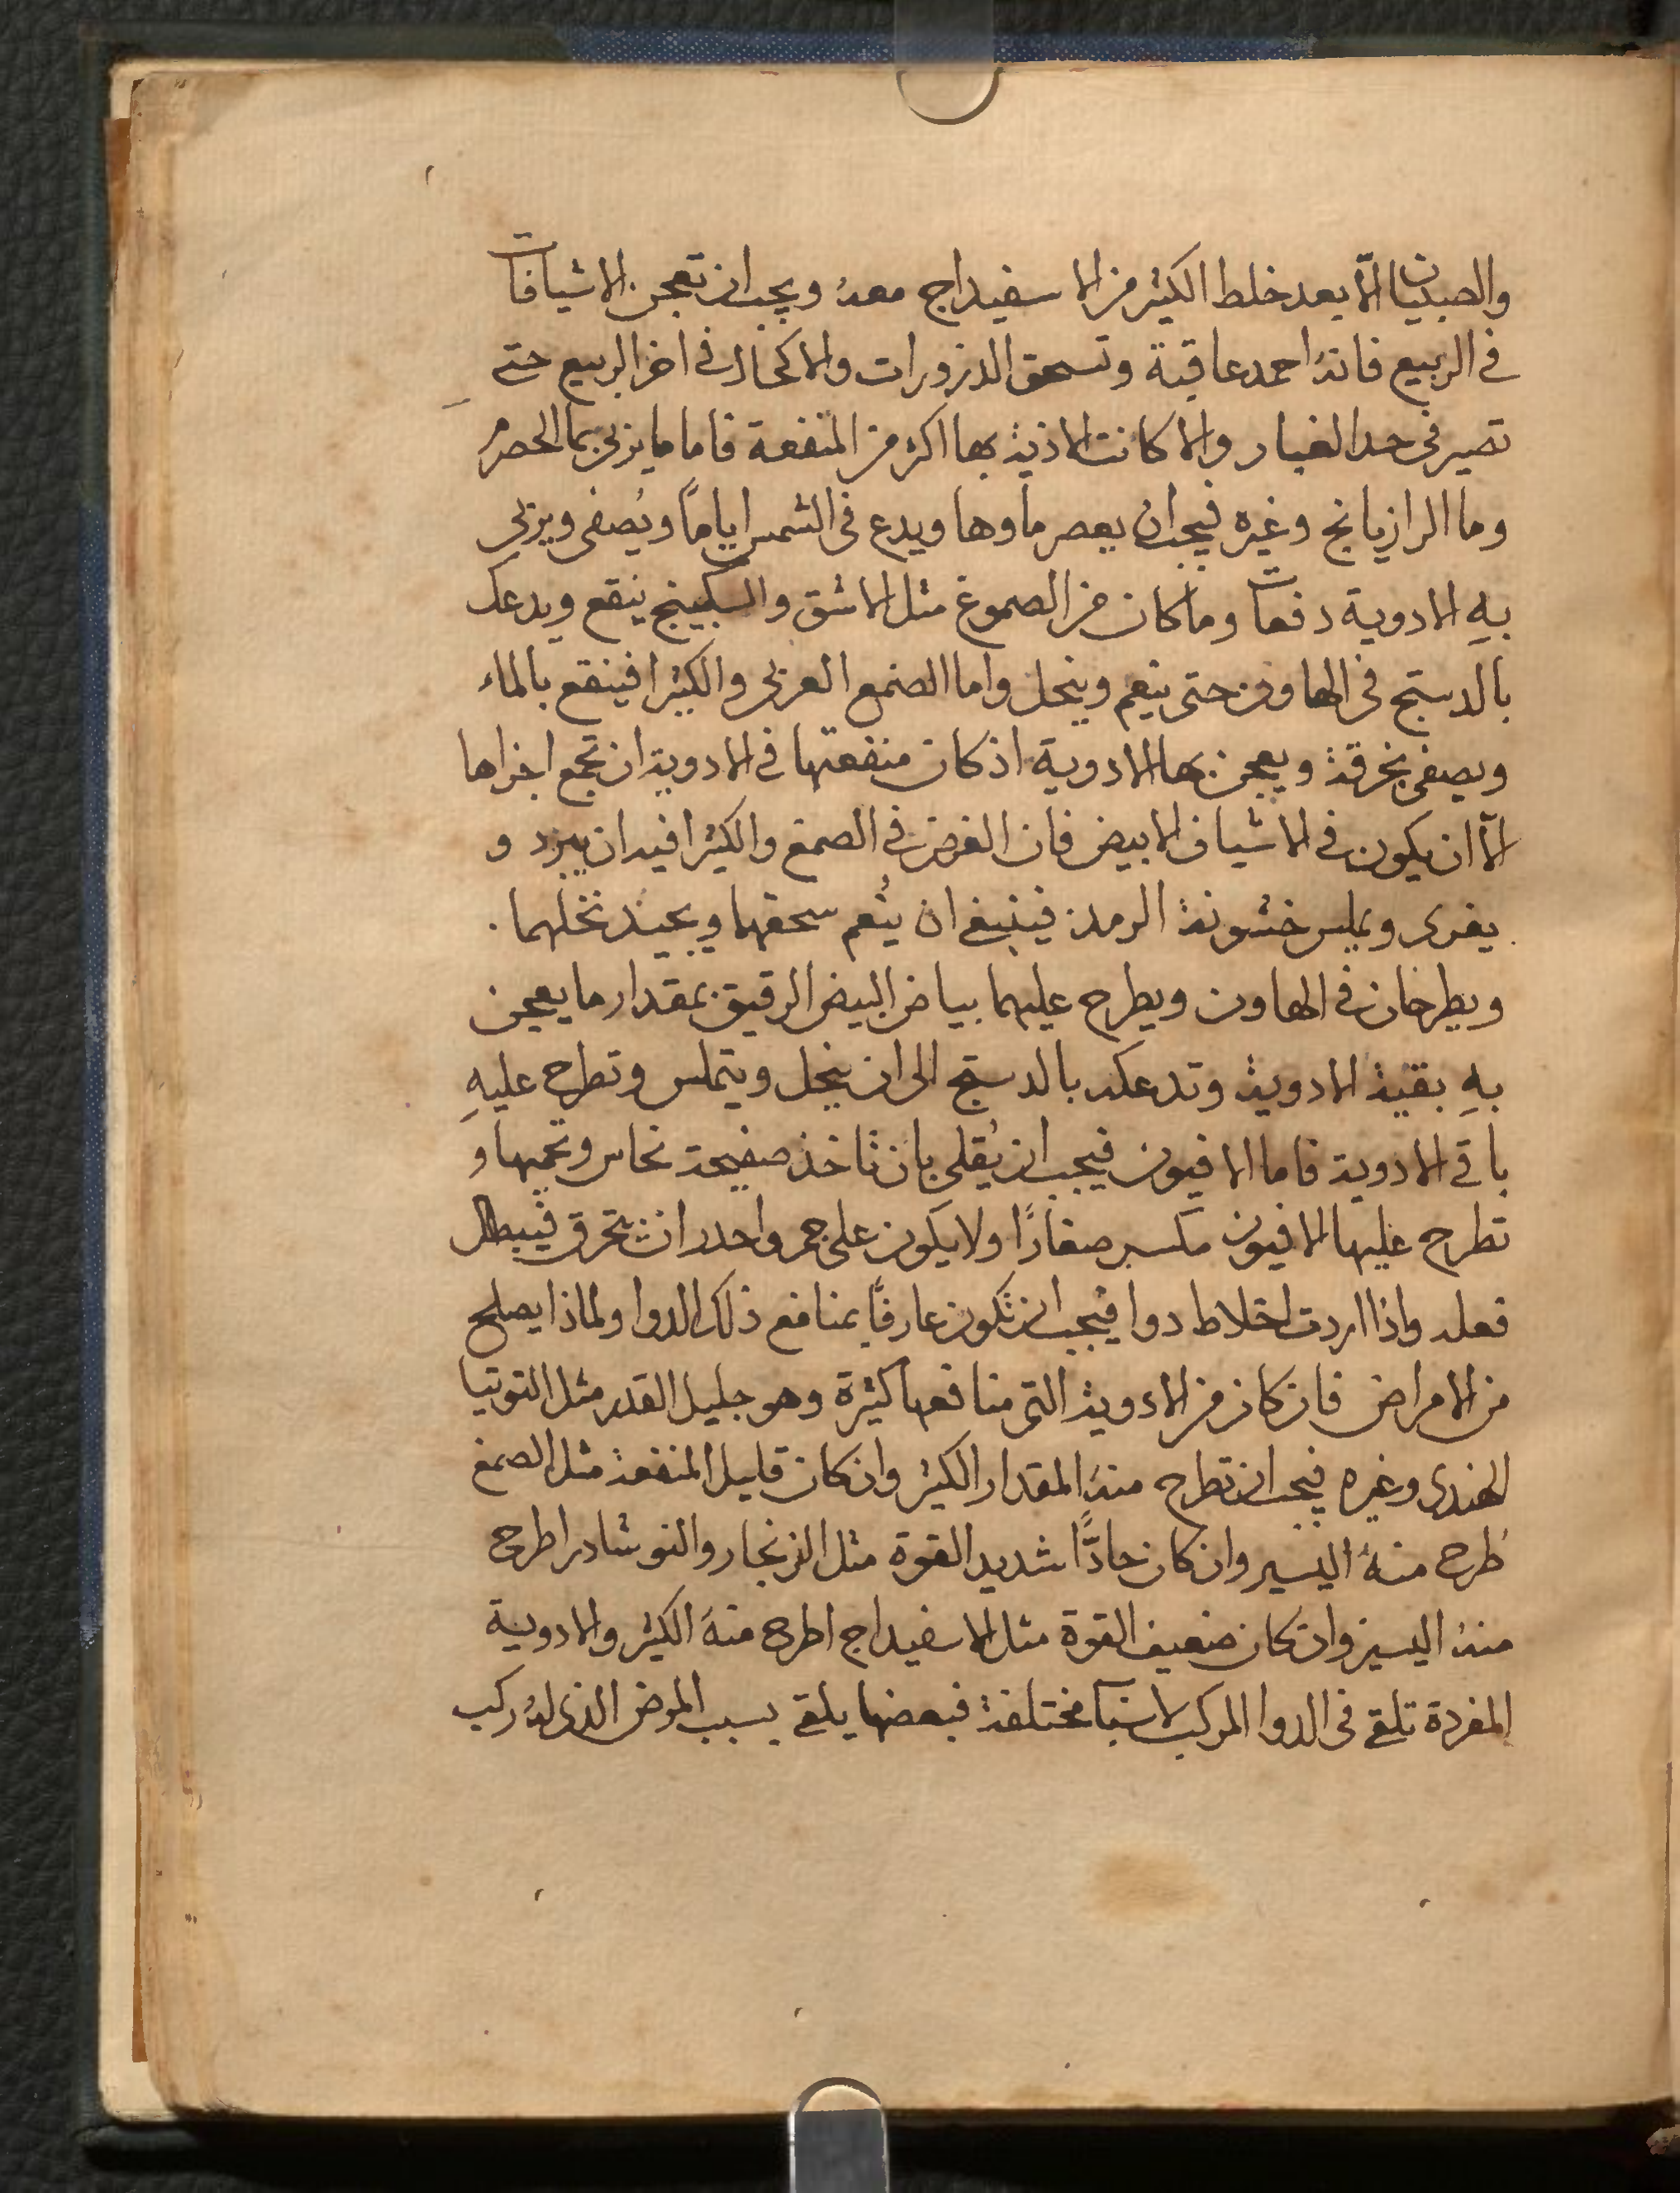 والصبيان الّا بعد خلط الكثير من الاسفيداج معهُ ويجب ان تعجن الاشيافات
في الربيع فانهُ احمد عاقبة وتسحق الذرورات والاكحال في اخر الربيع حتى
تصير في حد الغبار والا كانت الاذية بها اكثر من المنفعة فاما ما يربى بما الحصرم
وما الرازيانج وغيره فيجب ان يعصر ماوها ويدع في الشمس اياماً ويُصفى ويربى
بهِ الادوية دفعات وما كان من الصموغ مثل الاشق والسكبينج ينقع ويدعك
بالدستج في الهاون حتى ينعم وينحل واما الصمغ العربي والكثيرا فينقع بالماء
ويصفى بخرقة ويعجن بها الادوية اذ كان منفعتها في الادوية ان تجمع اجزاها
الّا ان يكون في الاشياف الابيض فان الغرض في الصمغ والكثيرا فيه ان يبرد و
يغرى ويملس خشونة الرمد فينبغي ان يُنعم سحقهما ويجيد نخلهما .
ويطرحان في الهاون ويطرح عليهما بياض البيض الرقيق بمقدار ما يعجن
بهِ بقية الادوية وتدعكه بالدستج الى ان ينحل ويتملس وتطرح عليهِ
باقي الادوية فاما الافيون فيجب ان يُقلى بان تاخذ صفيحة نحاس وتحميها و
تطرح عليها الافيون مكسر صغاراً ولا يكون على جمر واحدر ان يحترق فيبطل
فعله واذا اردت اخلاط دوا فيجب ان تكون عارفًا بمنافع ذلك الدوا ولماذا يصلح
من الامراض فان كان من الادوية التي منافعها كثيرة وهو جليل القدر مثل التوتيا
الهندى وغيره فيجب ان تطرح منهُ المقدار الكثير وان كان قليل المنفعة مثل الصمغ
طُرح منهُ اليسير وان كان حادًّا شديد القوة مثل الزنجار والنوشادر اطرح
منهُ اليسير وان كان ضعيف القوة مثل الاسفيداج اطرح منهُ الكثير والادوية
المفردة تلقى في الدوا المركب لاسباب مختلفة فبعضها يلقى بسبب المرض الذي لهُ ركب